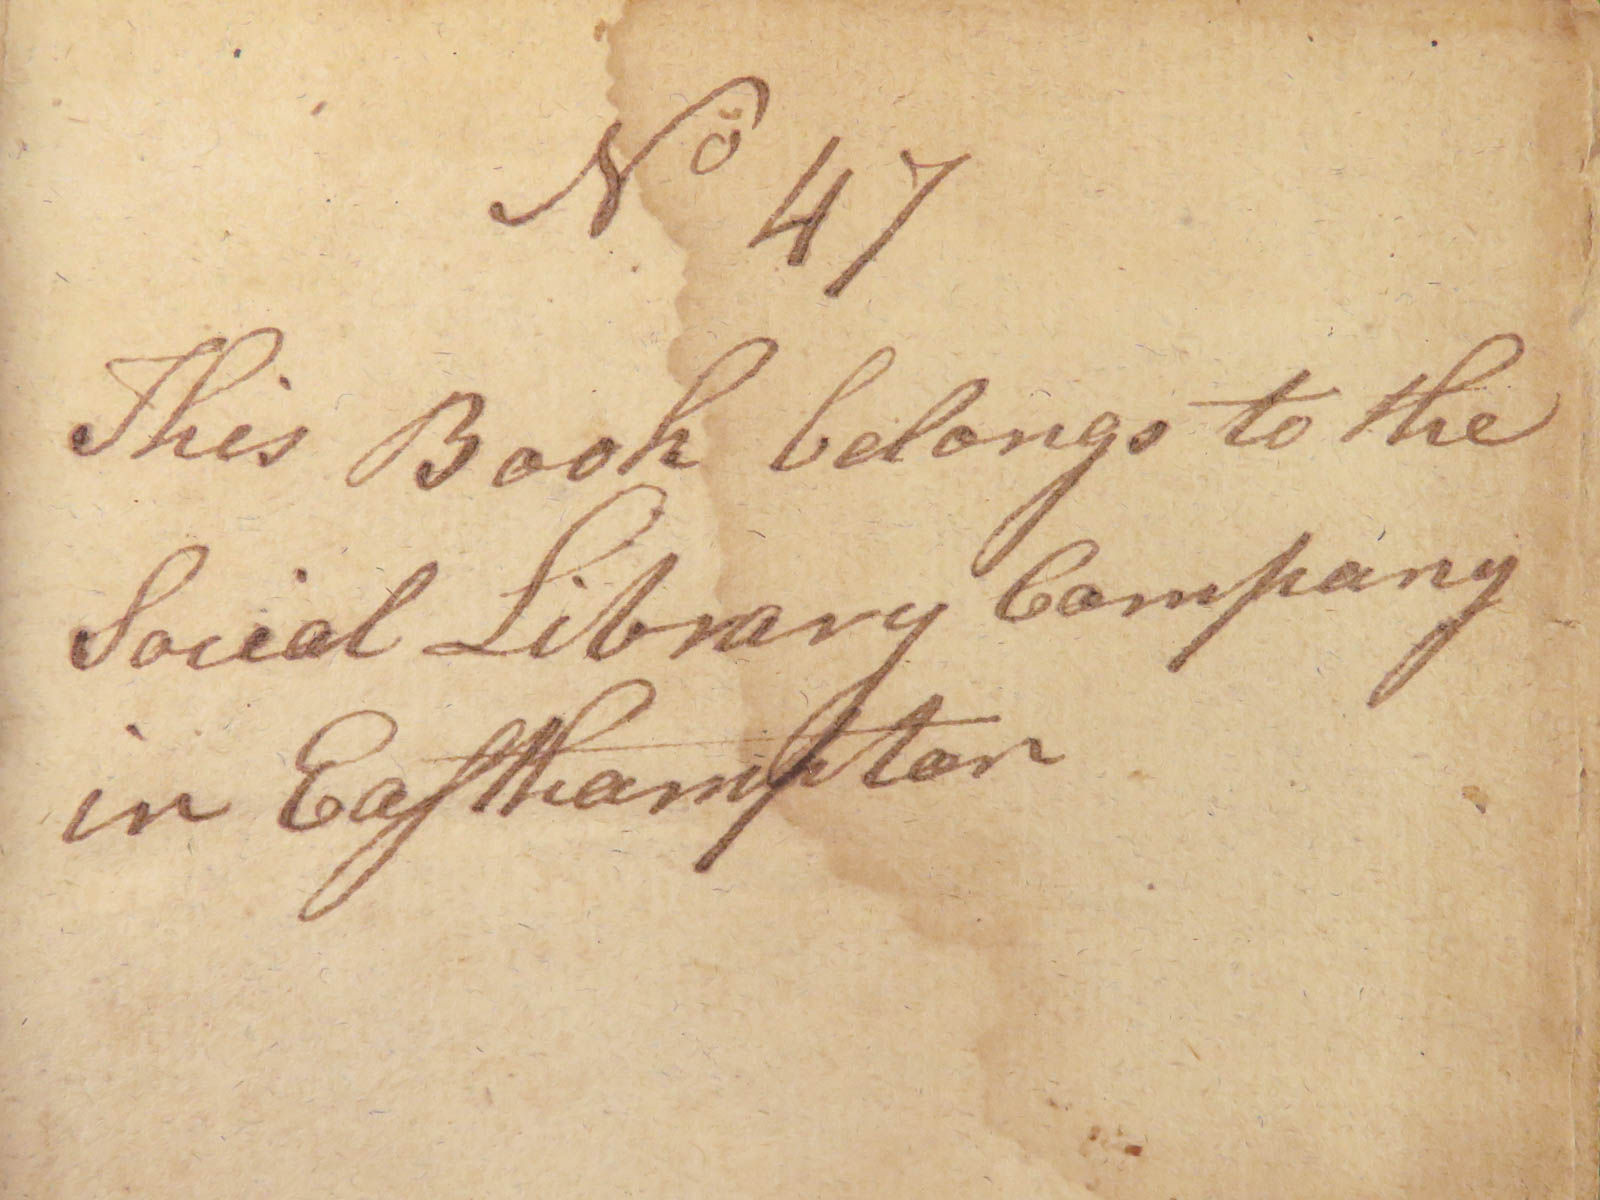 No 47
This Book belongs to the
Social Library Company
in Eaſthampton